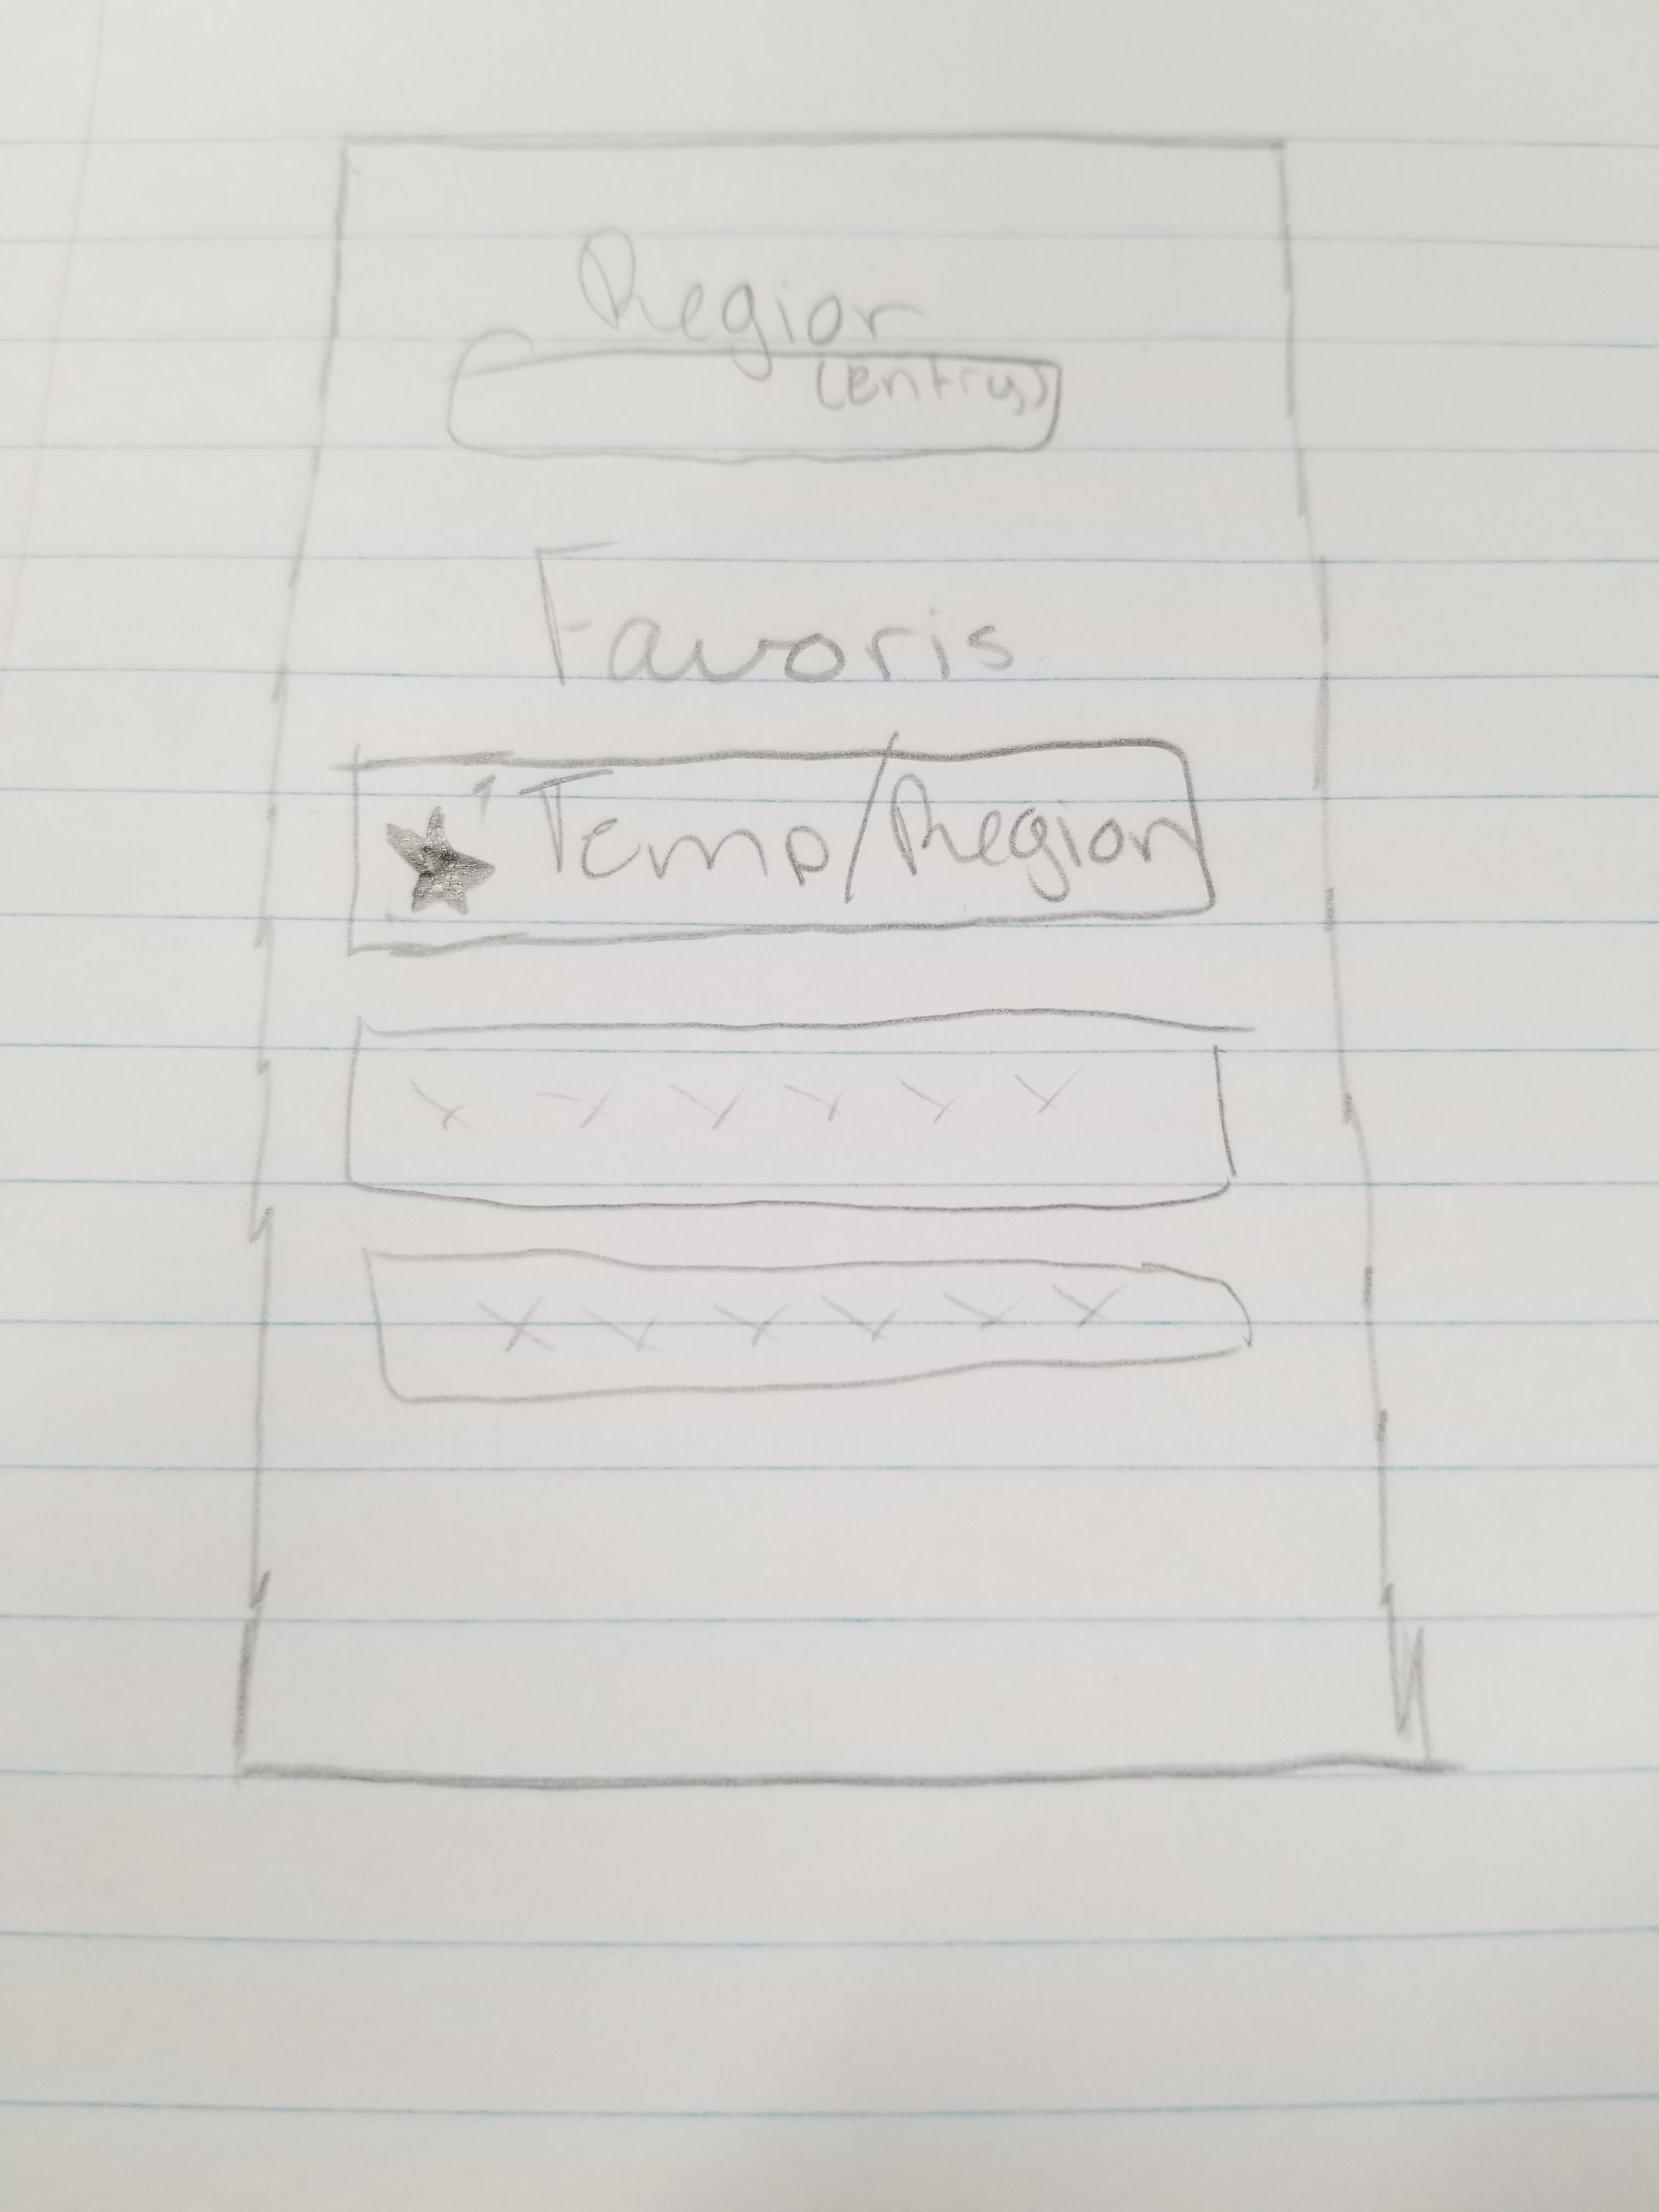 Region
(Entry)
Favoris
Temp/Region
x x x x x x
x x x x x x